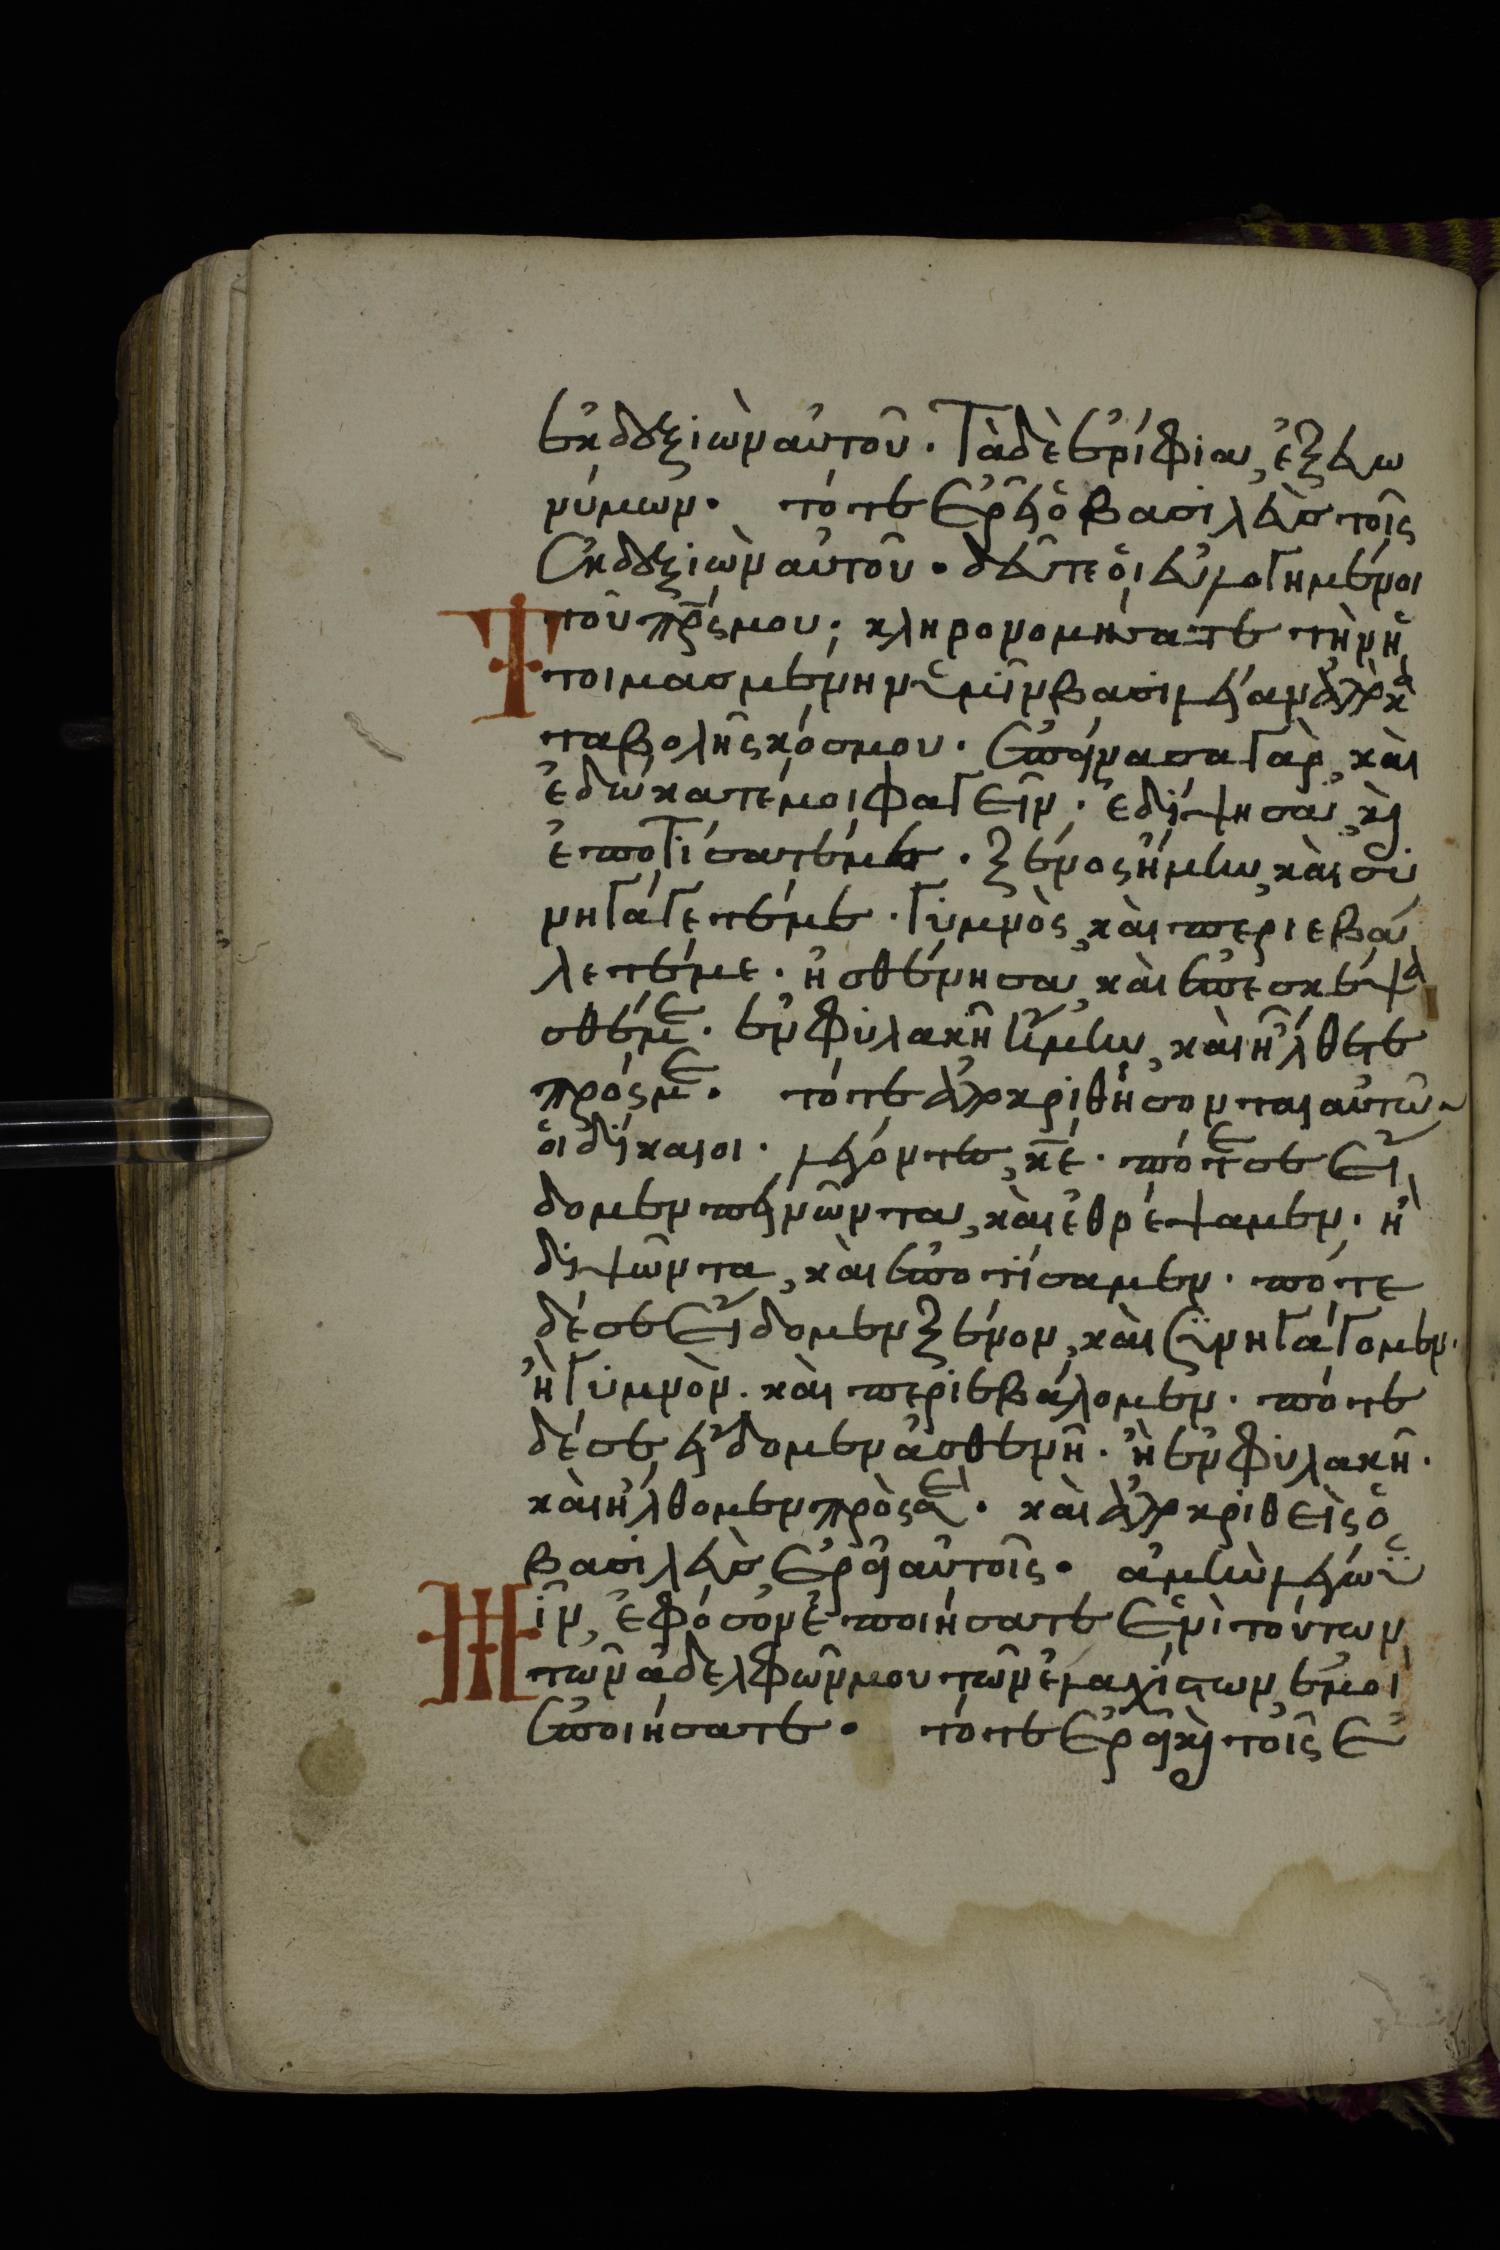 ἐκ δεξιὼν αὐτοῦ. Τὰ δὲ ἐρίφια, ἐξ εὐω
νύμων. τότε ἐρεῖ ὁ βασιλεὺς τοῖς
ἐκ δεξιὼν αὐτοῦ. δεῦτε οἱ εὐλογημένοι
τοῦ πρς μου, κληρονομήσατε τὴν ἡ
τοιμασμένην ὑμῖν βασιλείαν ἀπὸ κα
ταβολῆς κόσμου. ἐπείνασα γὰρ, καὶ
ἐδώκατέ μοι φαγεῖν. ἐδίψησα, καὶ
ἐποτίσατέ με. ξένος ἤμην, καὶ συ
νηγάγετέ με. γυμνὸς, καὶ περιεβά
λετέ με. ἠσθένησα, καὶ ἐπεσκέψα
σθέ με. ἐν φυλακῆ ἤμην, καὶ ἤλθετε
πρός με. τότε ἀποκριθήσονται αὐτῶ
οἱ δίκαιοι. λέγοντες, κε. πότε σε εἴ
δομεν πεινῶντα, καὶ ἐθρέψαμεν. ἢ
διψῶντα, καὶ ἐποτίσαμεν. πότε
δέ σε εἴδομεν ξένον, καὶ συνηγάγομεν.
ἢ γυμνὸν. καὶ περιεβάλομεν. πότε
δέ σε εἴδομεν ἀσθενῆ. ἢ ἐν φυλακῆ.
καὶ ἤλθομεν πρὸς σε. καὶ ἀποκριθεὶς ὁ
βασιλεὺς ἐρεῖ αὐτοῖς. ἀμὴν λέγω ὑ
μῖν, ἐφόσον ἐποιήσατε ἑνὶ τούτων
τῶν ἀδελφῶν μου τῶν ἐλαχίστων, ἐμοὶ
ἐποιήσατε. τότε ἐρεῖ καὶ τοῖς ἐ